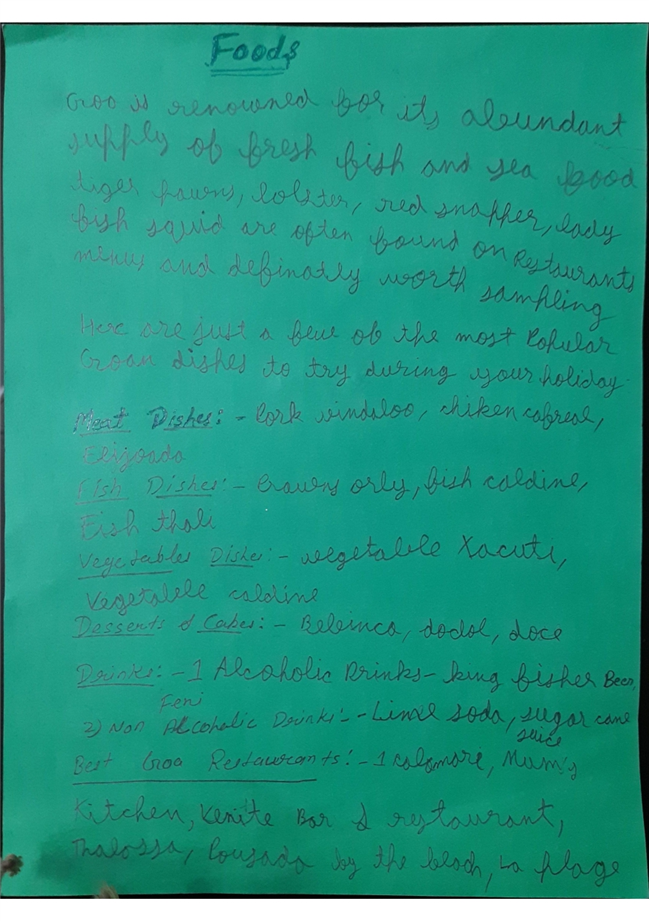 Foods
Goa is renowned for its abundant
supply of fresh fish and sea food
tiger pawns, lobster, red snapper, lady
fish squid are often found on Restaurants
menus and definatly worth sampling
Here are just a few of the most Popular
Goan dishes to try during your holiday.
Meat Dishes:- Pork vindaloo, chiken cafreal,
Feijoada
Fish Dishes:- Prawns orly, fish caldine,
Fish thali
Vegetables Dishes:- vegetable Xacuti,
Vegetable caldine
Desserts & Cakes:- Bebinca, dodol, doce
Drinks:- 1 Alcoholic Drinks- king fisher Beer,
Feni
2) Non Alcoholic Drinks:- Lime soda, sugar cane
juice
Best Goa Restaurants:- 1 calamare, Mum's
Kitchen, Kenite Bar & restaurant,
Thalassa, Pousada by the beach, La plage